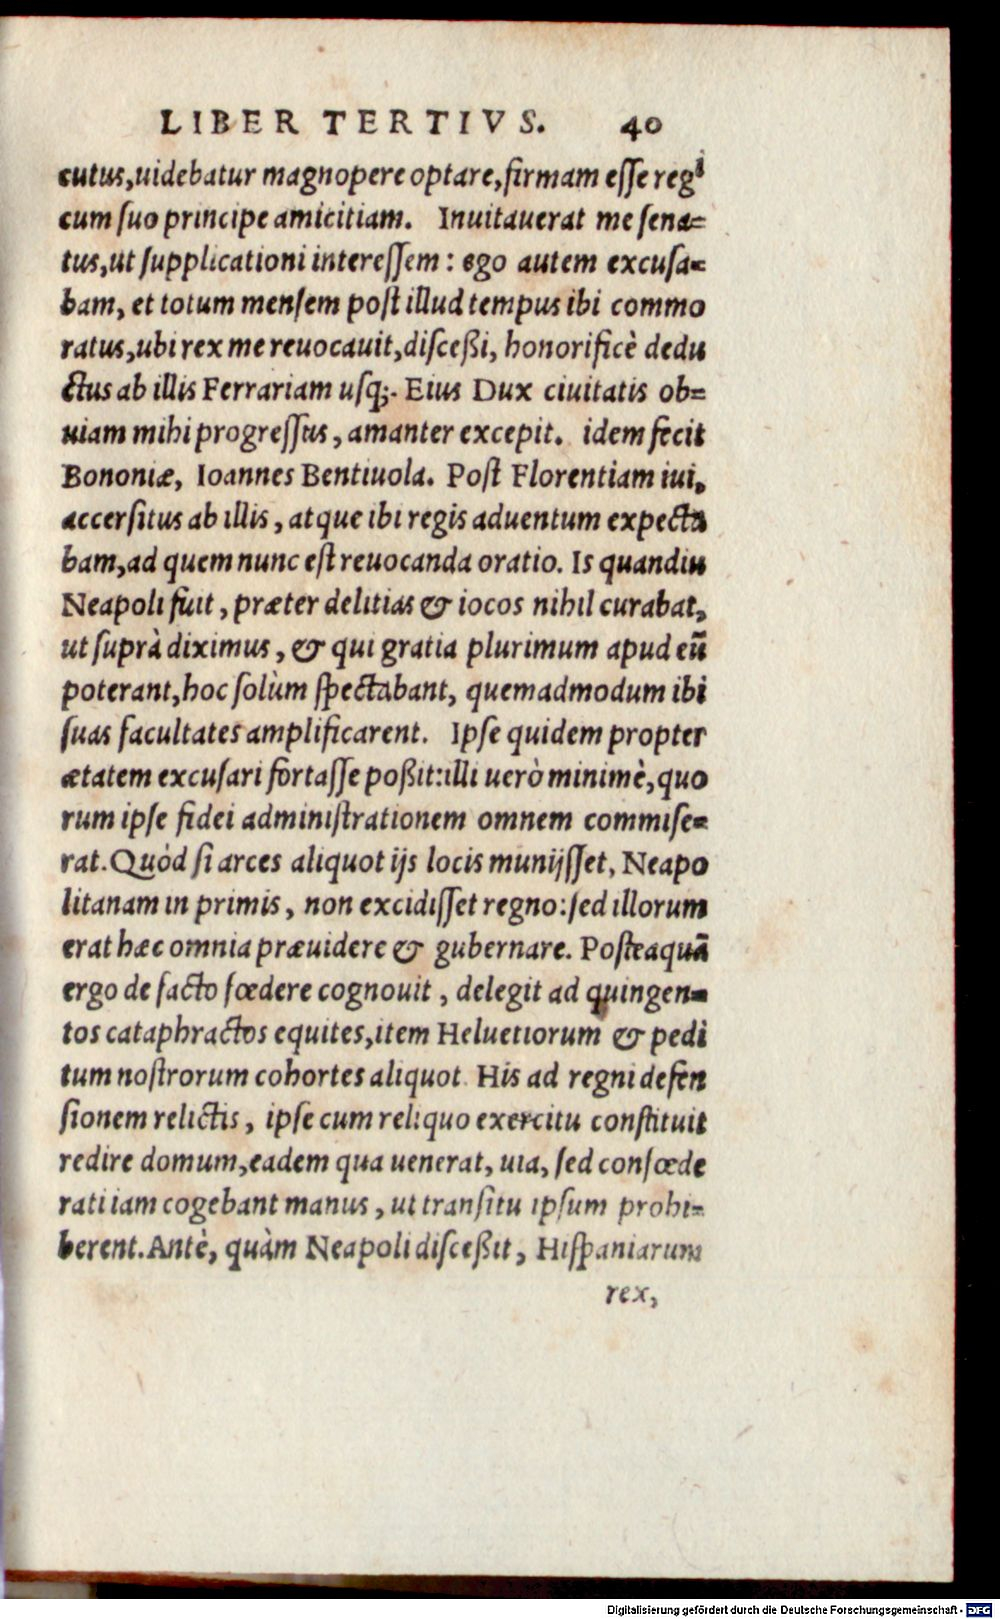 LIBER TERTIVS. 40
cutus,uidebatur magnopere optare,firmam eſſe regi
cum ſuo principe amicitiam. Inuitauerat me ſena=
tus,ut ſupplicationi intereſſem: ego autem excuſa=
bam, et totum menſem poſt illud tempus ibi commo
ratus,ubi rex me reuocauit,diſceßi, honorificè dedu
ctus ab illis Ferrariam uſq;. Eius Dux ciuitatis ob=
uiam mihi progreſſus, amanter excepit. idem fecit
Bononiæ, Ioannes Bentiuola. Poſt Florentiam iui,
accerſitus ab illis, atque ibi regis aduentum expecta
bam,ad quem nunc eſt reuocanda oratio. Is quandiu
Neapoli fuit, præter delitias & iocos nihil curabat,
ut ſuprà diximus, & qui gratia plurimum apud eũ
poterant,hoc ſolùm ſpectabant, quemadmodum ibi
ſuas facultates amplificarent. Ipſe quidem propter
ætatem excuſari fortaſſe poßit:illi uerò minimè,quo
rum ipſe fidei adminiſtrationem omnem commiſe=
rat.Quòd ſi arces aliquot ijs locis munijſſet, Neapo
litanam in primis, non excidiſſet regno:ſed illorum
erat hæc omnia præuidere & gubernare. Poſteaquã
ergo de facto fœdere cognouit, delegit ad quingen=
tos cataphractos equites,item Heluetiorum & pedi
tum noſtrorum cohortes aliquot. His ad regni defen
ſionem relictis, ipſe cum reliquo exercitu conſtituit
redire domum,eadem qua uenerat, uia, ſed confœde
rati iam cogebant manus, ut tranſitu ipſum prohi=
berent.Antè, quàm Neapoli diſceßit, Hiſpaniarum
rex,
Digitalisierung gefördert durch die Deutsche Forschungsgemeinschaft - DFG